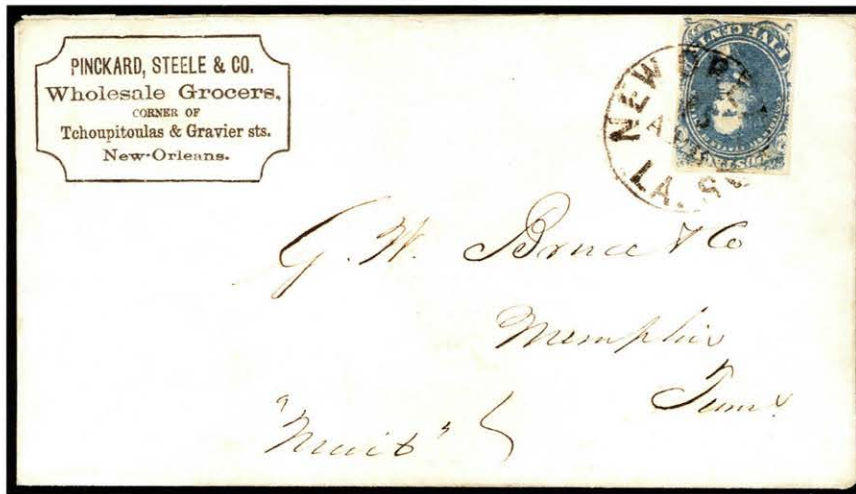 PINCKARD, STEELE & CO.
Wholesale Grocers,
CORNER OF
Tchoupitoulas & Gravier sts.
New-Orleans.
FIVE CENTS
NEW
LA.
G. W. Bruce & Co
Memphis
Tenn